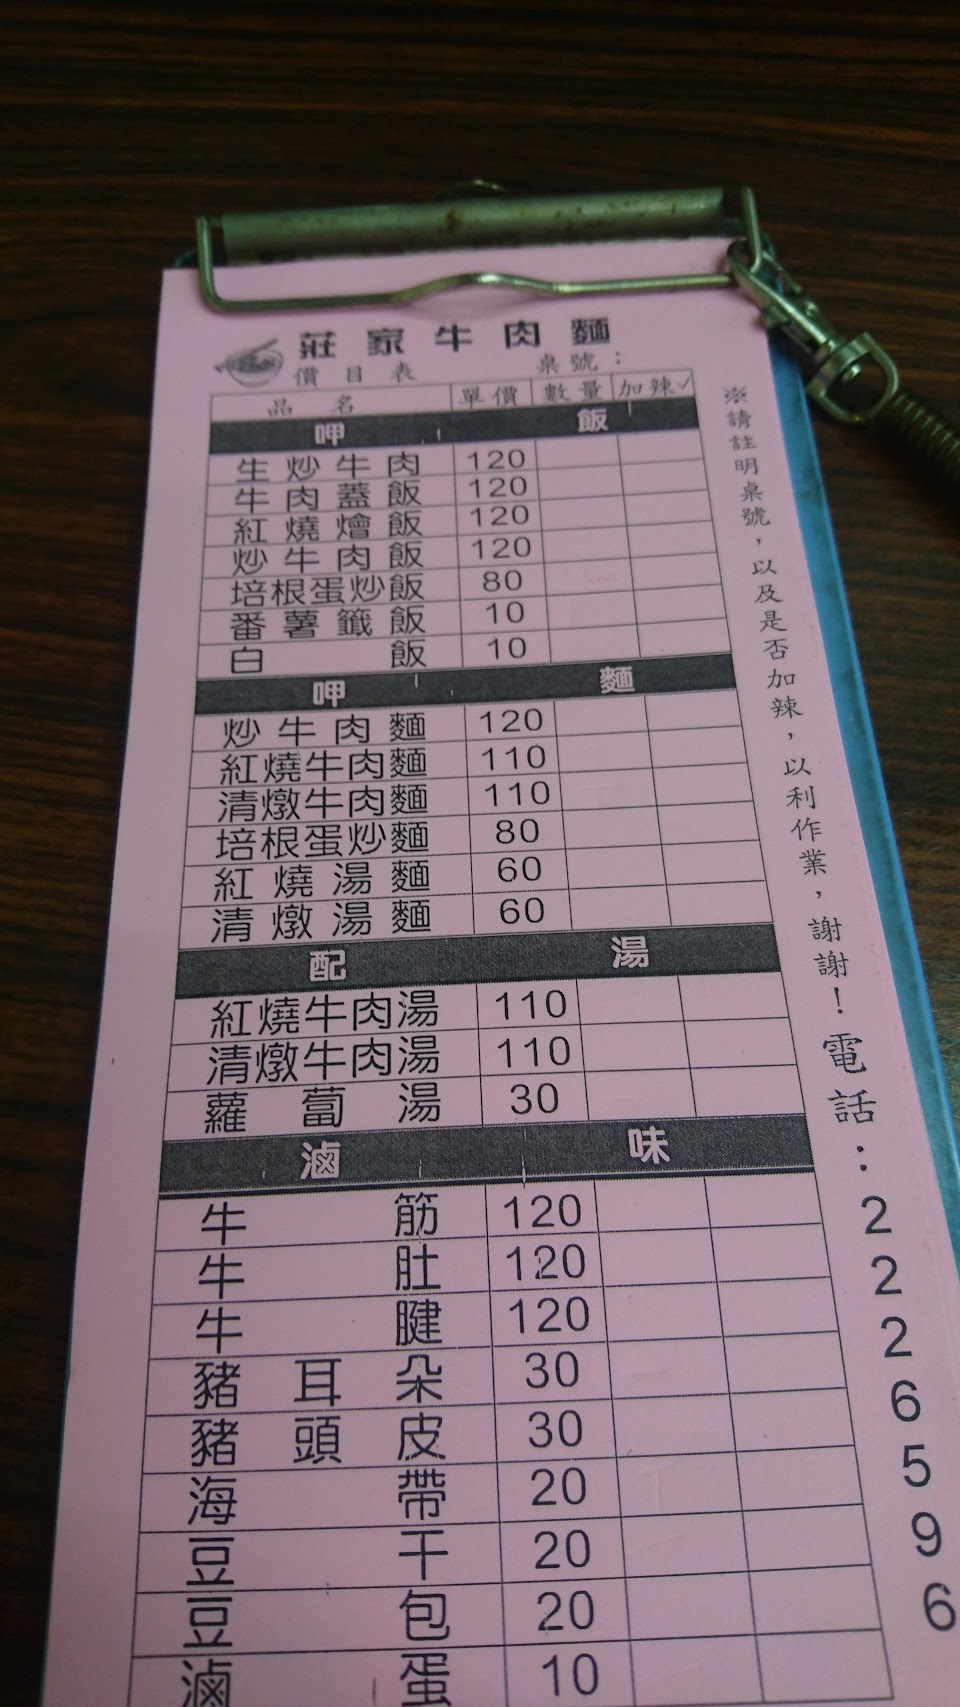 莊家牛肉麵
價目表 桌號：
品名 單價 數量 加辣✓
呷飯
生炒牛肉 120
牛肉蓋飯 120
紅燒燴飯 120
炒牛肉飯 120
培根蛋炒飯 80
番薯籤飯 10
白飯 10
呷麵
炒牛肉麵 120
紅燒牛肉麵 110
清燉牛肉麵 110
培根蛋炒麵 80
紅燒湯麵 60
清燉湯麵 60
配湯
紅燒牛肉湯 110
清燉牛肉湯 110
蘿蔔湯 30
滷味
牛筋 120
牛肚 120
牛腱 120
豬耳朵 30
豬頭皮 30
海帶 20
豆干 20
豆包 20
滷蛋 10
※請註明桌號，以及是否加辣，以利作業，謝謝！電話：2226596